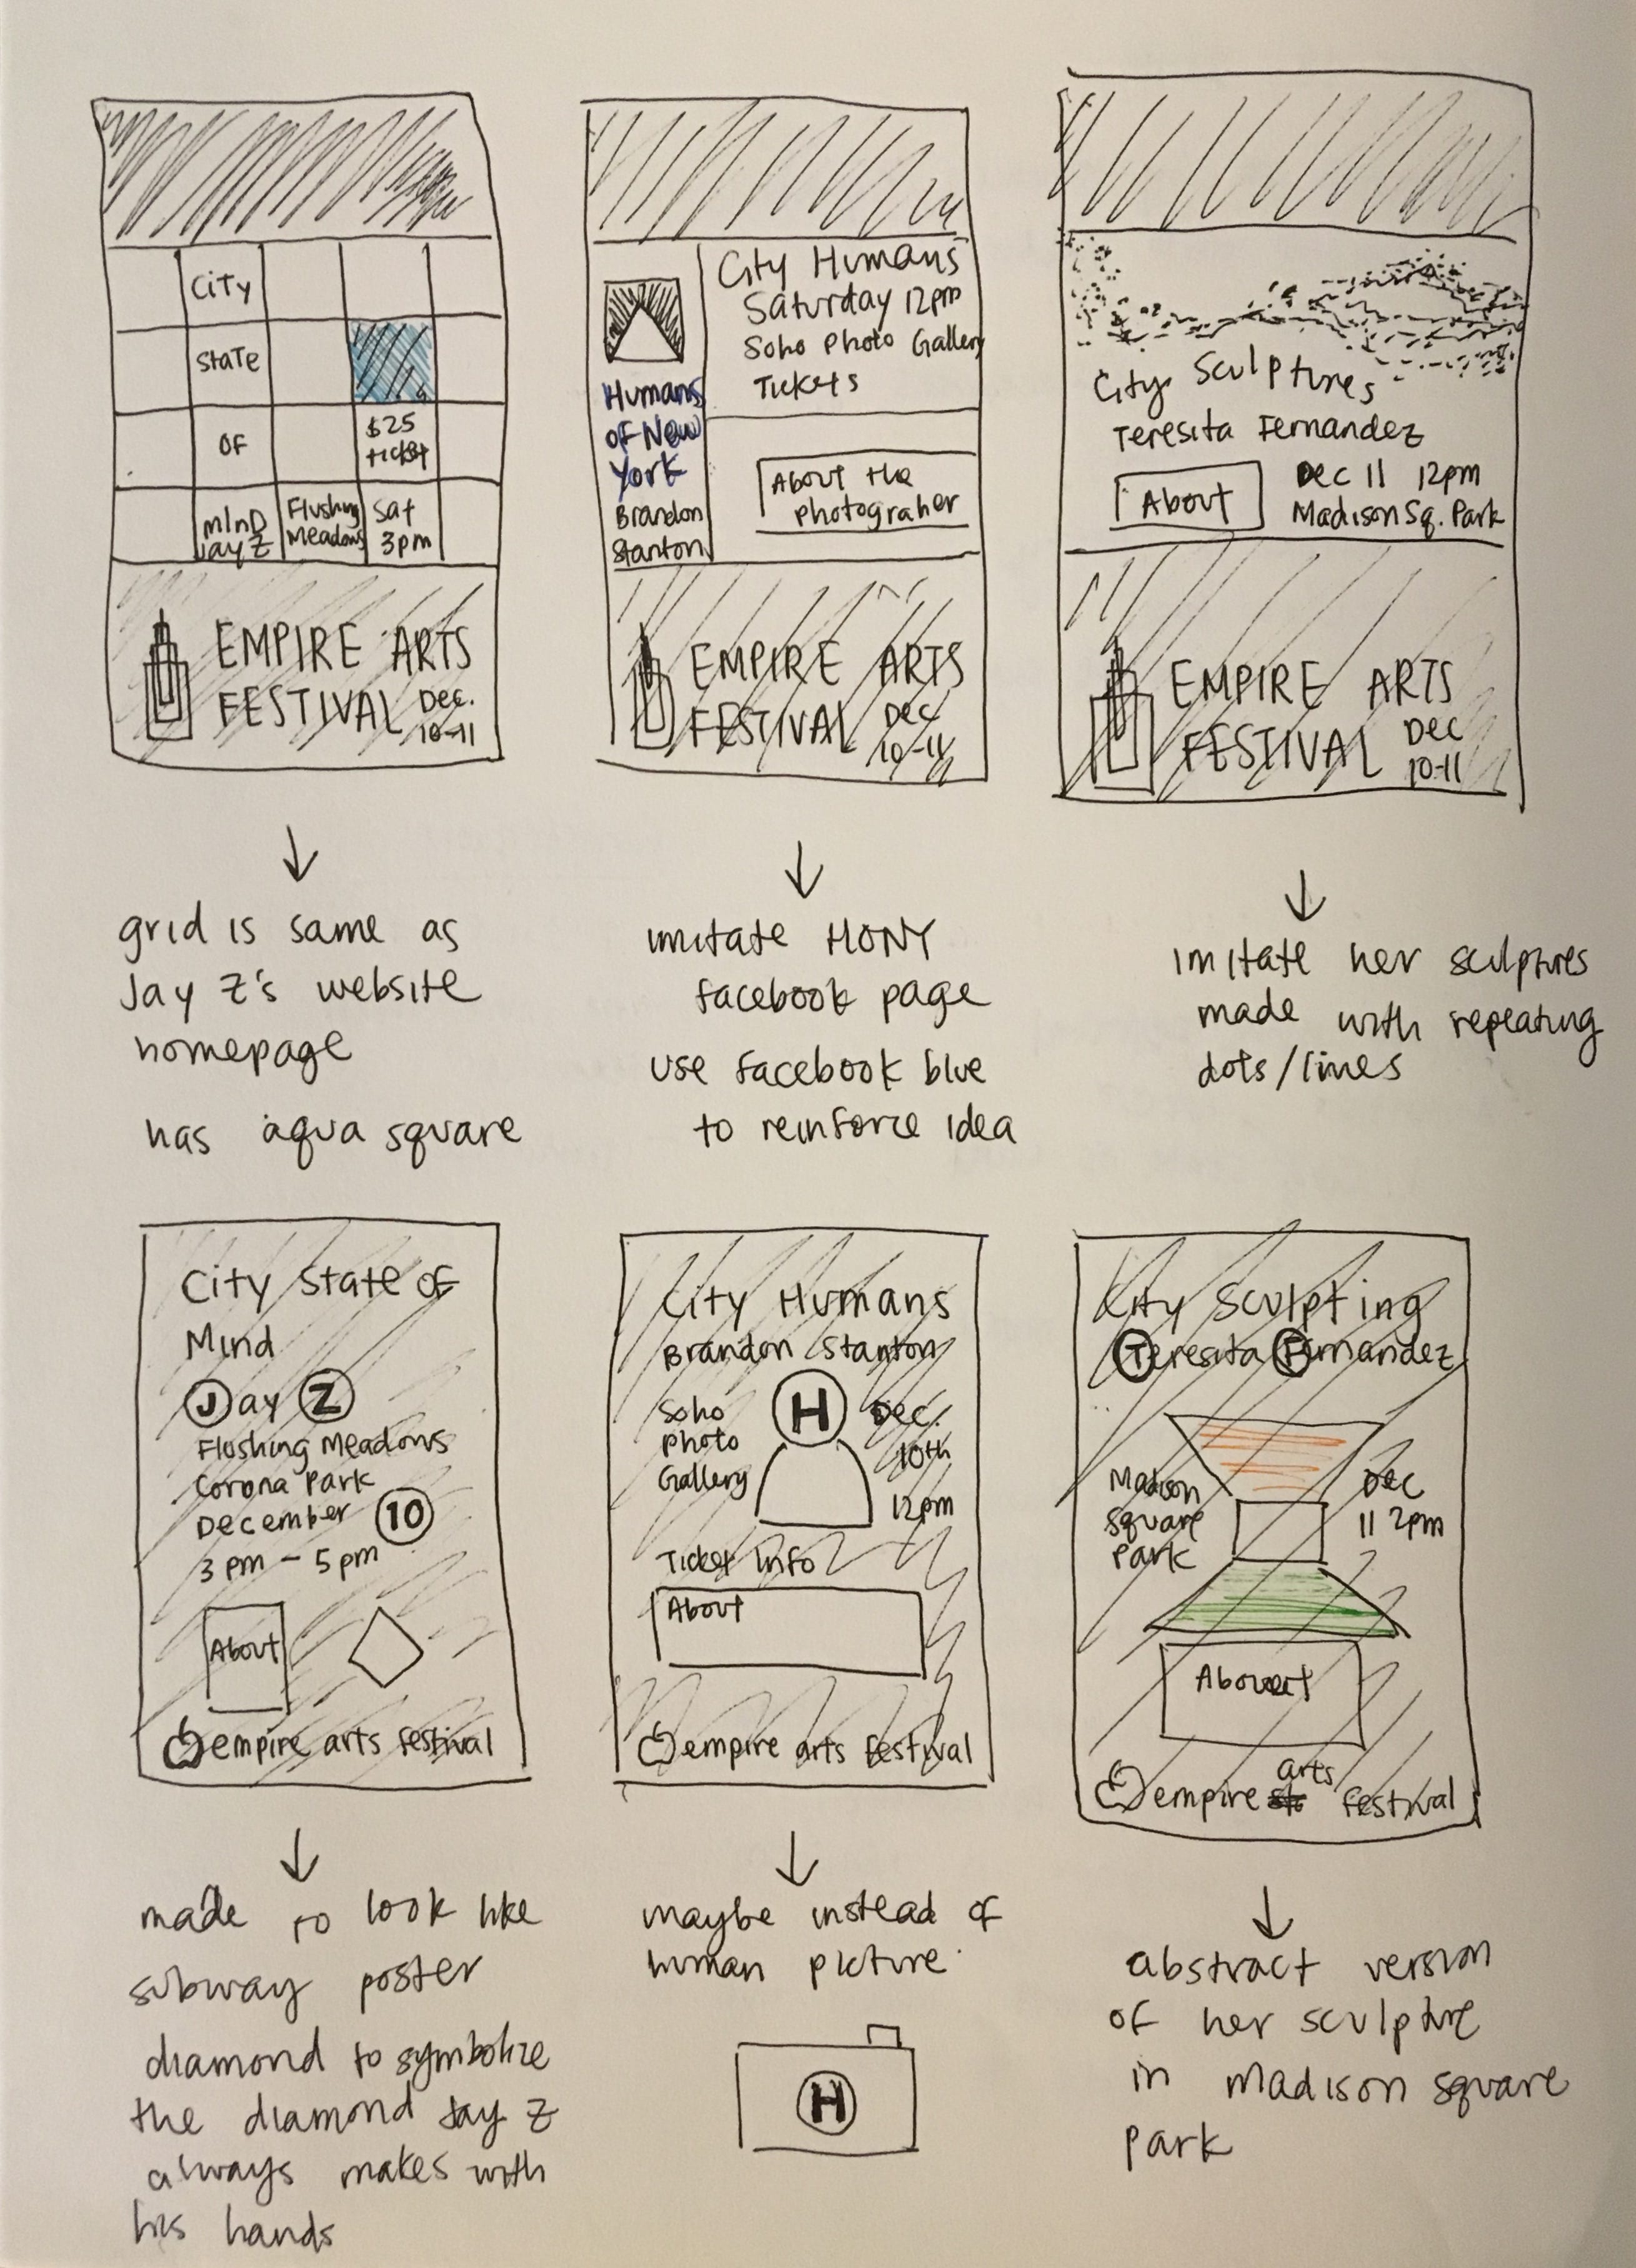 City
State
OF
$25
ticket
mInD
Jay Z
Flushing
Meadows
Sat
3pm
EMPIRE ARTS
FESTIVAL Dec.
10-11
City Humans
Saturday 12pm
Soho Photo Gallery
Tickets
Humans
of New
York
Brandon
Stanton
About the
photograher
EMPIRE ARTS
FESTIVAL Dec
10-11
City Sculptures
Teresita Fernandez
About
Dec 11 12pm
Madison Sq. Park
EMPIRE ARTS
FESTIVAL Dec
10-11
grid is same as
Jay Z's website
homepage
has aqua square
imitate HONY
facebook page
use facebook blue
to reinforce idea
imitate her sculptures
made with repeating
dots/lines
City State of
Mind
Jay Z
Flushing Meadows
Corona Park
December 10
3 pm - 5 pm
About
empire arts festival
City Humans
Brandon Stanton
Soho
Photo
Gallery
H
Dec.
10th
12pm
Ticket Info
About
empire arts festival
City Sculpting
Teresita Fernandez
Madison
Square
Park
Dec
11 2pm
About
empire arts festival
made to look like
subway poster
diamond to symbolize
the diamond Jay Z
always makes with
his hands
maybe instead of
human picture
H
abstract version
of her sculpture
in madison square
park